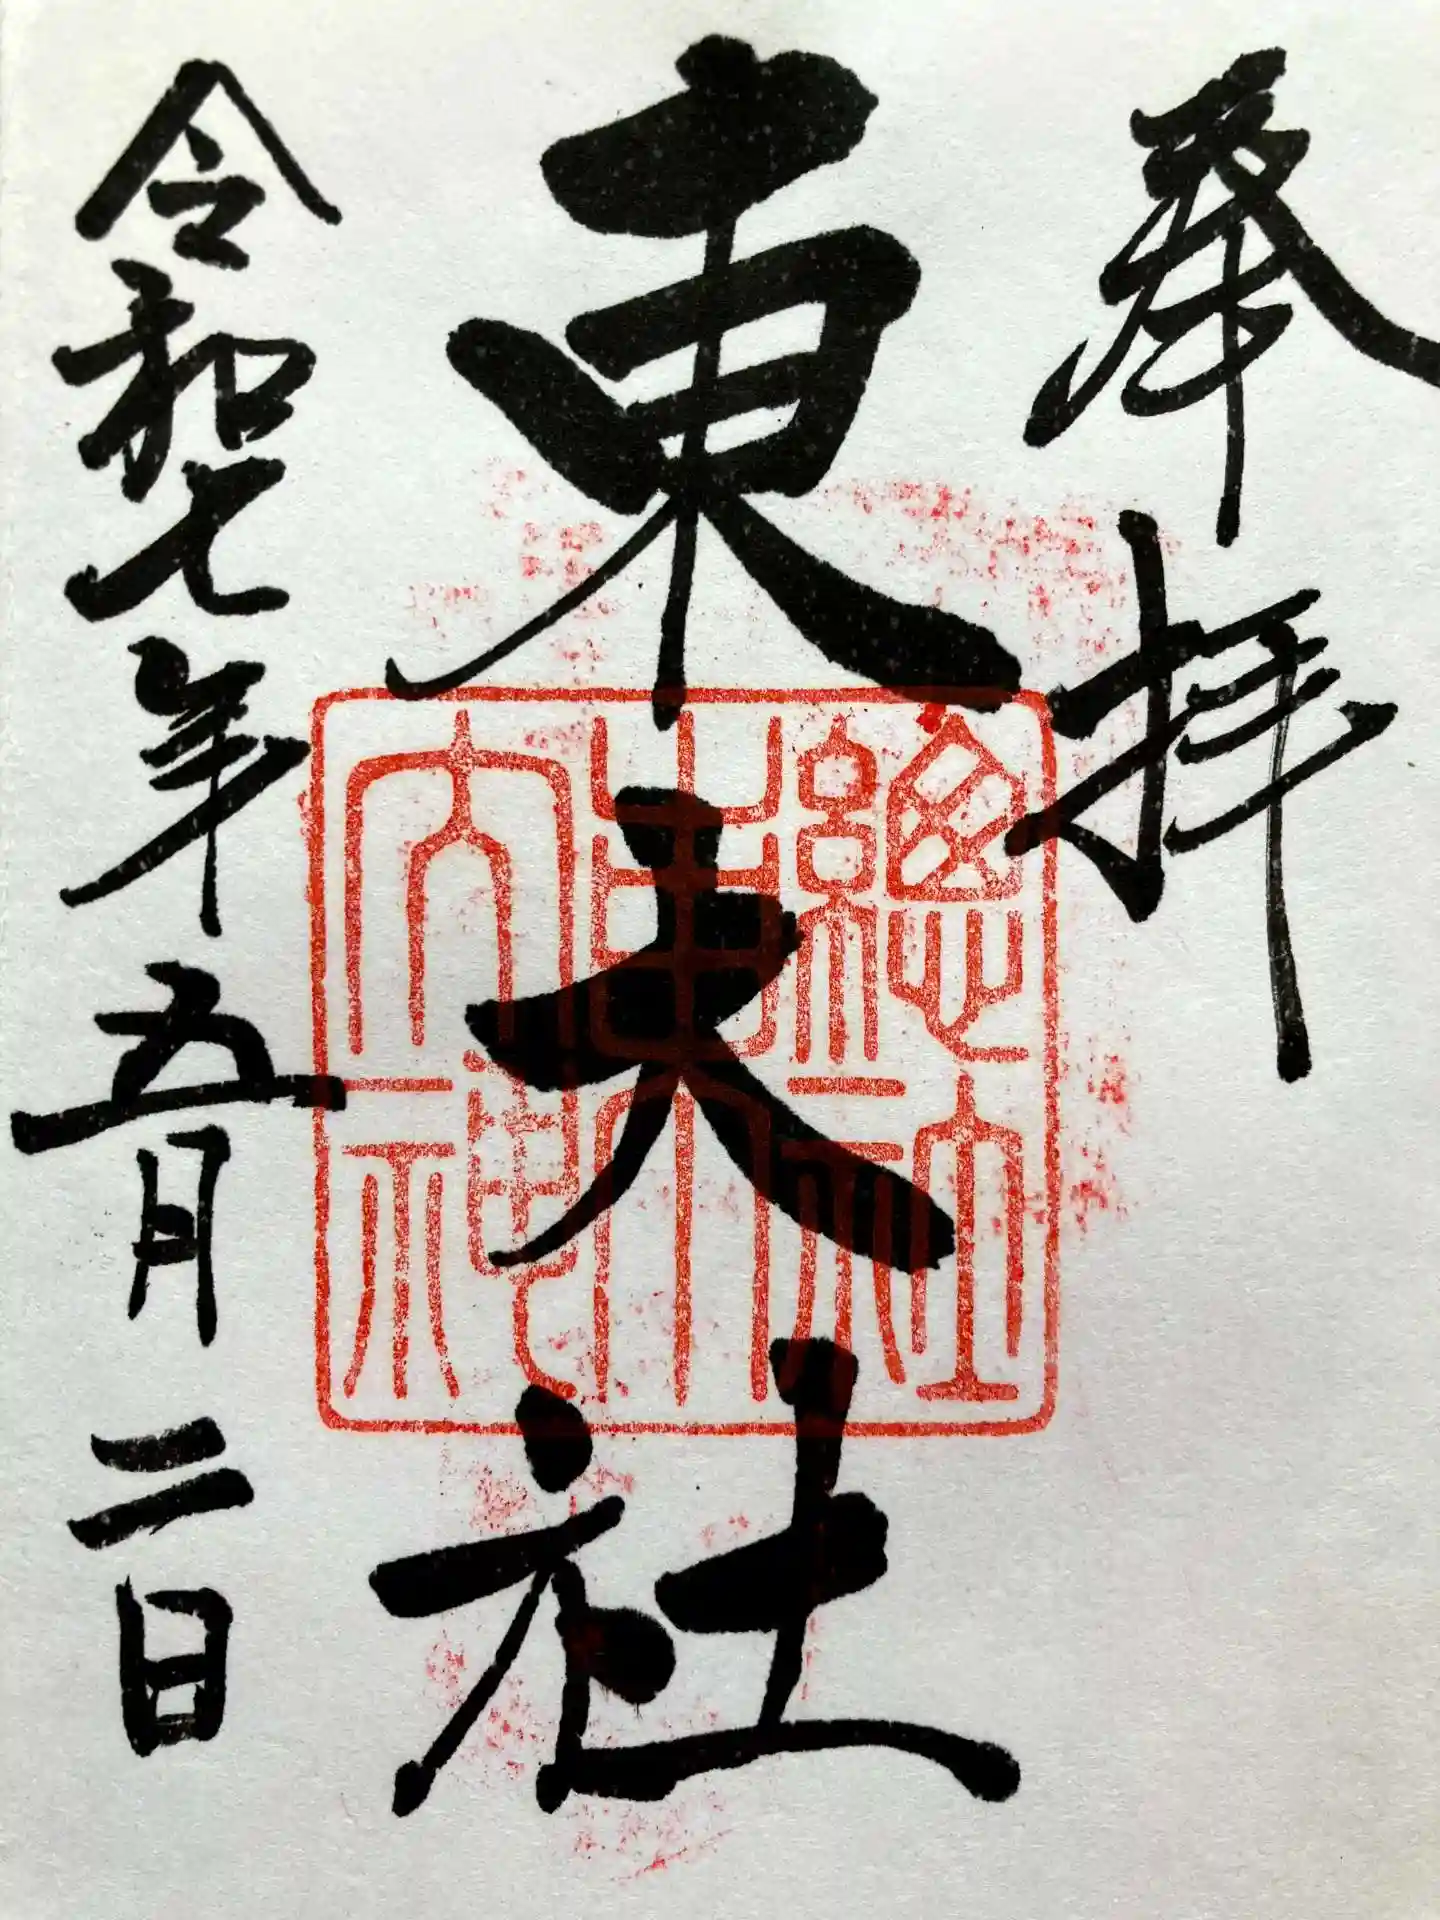 奉拝
東大社
總社
東
大神
令和七年五月二日